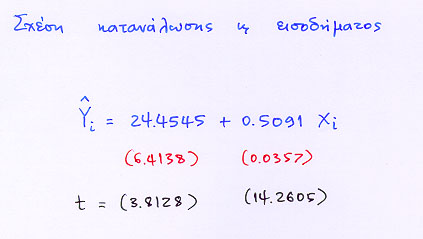 Σχέση κατανάλωσης κ εισοδήματος
Ŷi = 24.4545 + 0.5091 Xi
(6.4138) (0.0357)
t = (3.8128) (14.2605)